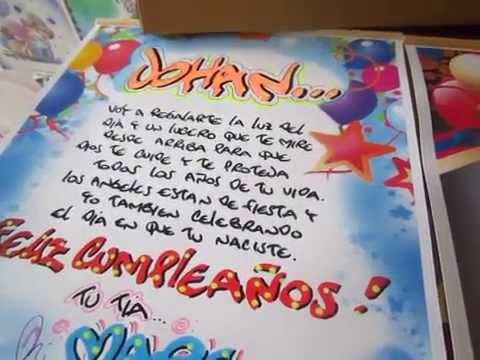 JOHAN...
VOY A REGALARTE LA LUZ DEL
DÍA Y UN LUCERO QUE TE MIRE
DESDE ARRIBA PARA QUE
DIOS TE CUIDE Y TE PROTEJA
TODOS LOS AÑOS DE TU VIDA.
LOS ANGELES ESTAN DE FIESTA Y
YO TAMBIEN CELEBRANDO
EL DÍA EN QUE TU NACISTE.
FELIZ CUMPLEAÑOS!
TU TIA...